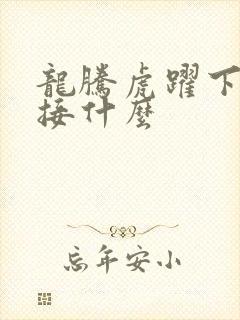 龍騰虎躍下
接什麼
忘年安小